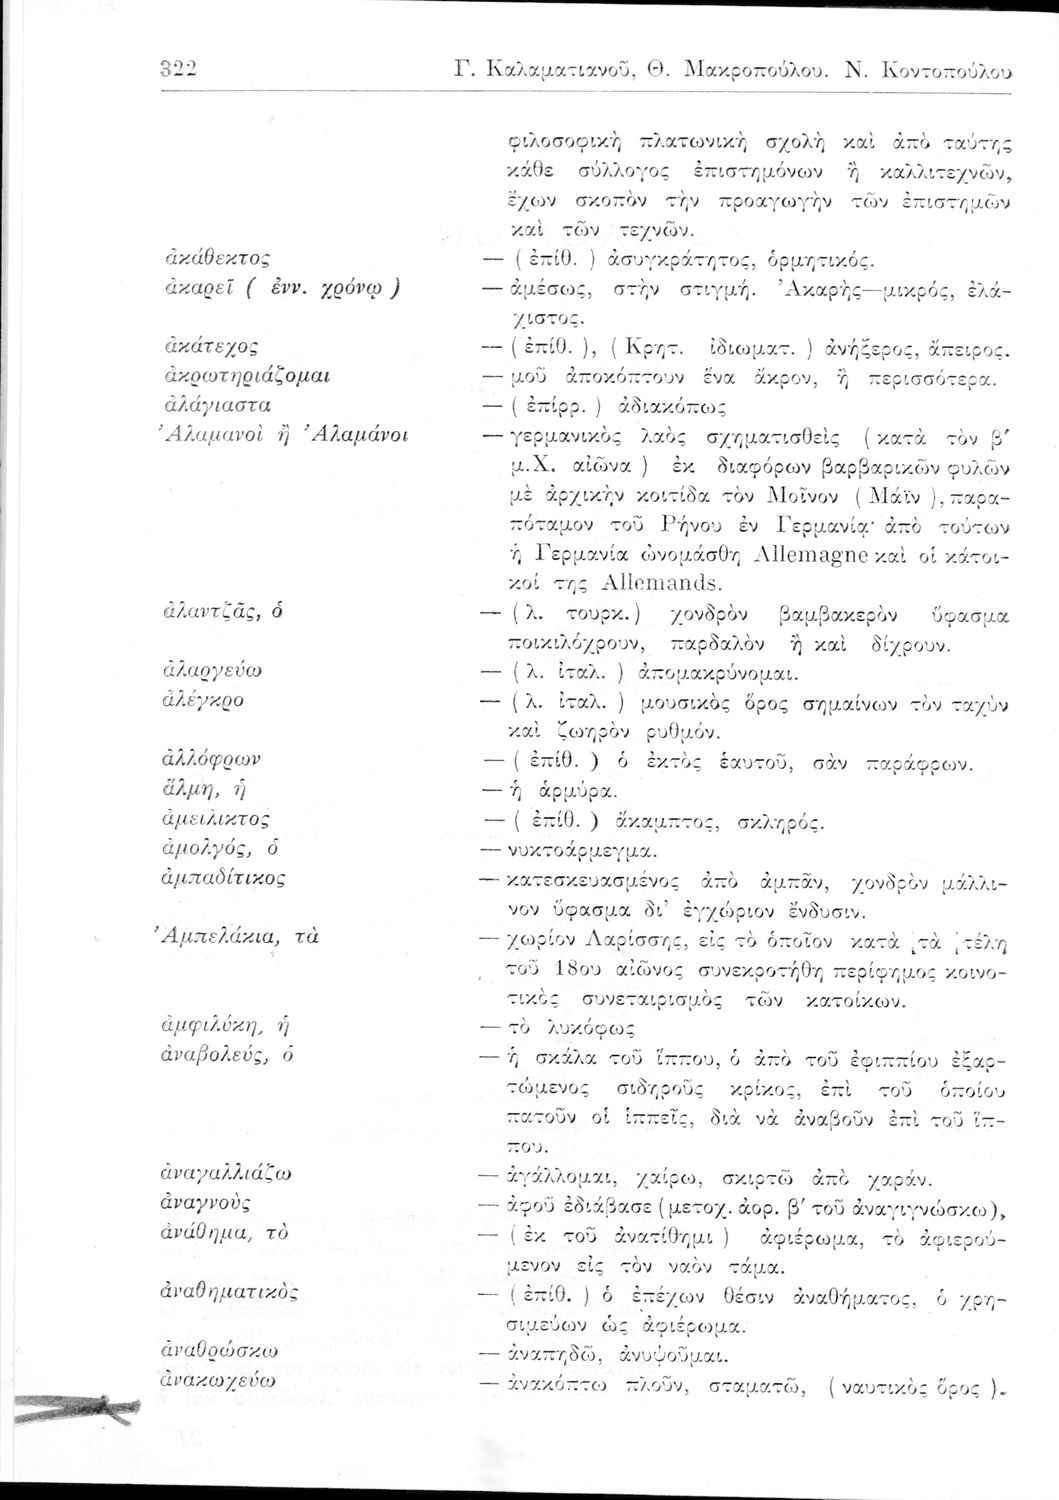 322 Γ. Καλαματιανοῦ, Θ. Μακροπούλου. Ν. Κοντοπούλου
φιλοσοφικὴ πλατωνικὴ σχολὴ καὶ ἀπὸ ταύτης
κάθε σύλλογος ἐπιστημόνων ἢ καλλιτεχνῶν,
ἔχων σκοπὸν τὴν προαγωγὴν τῶν ἐπιστημῶν
καὶ τῶν τεχνῶν.
ἀκάθεκτος — ( ἐπίθ. ) ἀσυγκράτητος, ὁρμητικός.
ἀκαρεῖ ( ἐνν. χρόνῳ ) — ἀμέσως, στὴν στιγμή. Ἀκαρὴς—μικρός, ἐλά-
χιστος.
ἀκάτεχος — ( ἐπίθ. ), ( Κρητ. ἰδιωματ. ) ἀνήξερος, ἄπειρος.
ἀκρωτηριάζομαι — μοῦ ἀποκόπτουν ἕνα ἄκρον, ἢ περισσότερα.
ἀλάγιαστα — ( ἐπίρρ. ) ἀδιακόπως
Ἀλαμανοὶ ἢ Ἀλαμάνοι — γερμανικὸς λαὸς σχηματισθεὶς ( κατὰ τὸν β΄
μ.Χ. αἰῶνα ) ἐκ διαφόρων βαρβαρικῶν φυλῶν
μὲ ἀρχικὴν κοιτίδα τὸν Μοῖνον ( Μάϊν ), παρα-
πόταμον τοῦ Ρήνου ἐν Γερμανίᾳ· ἀπὸ τούτων
ἡ Γερμανία ὠνομάσθη Allemagne καὶ οἱ κάτοι-
κοί της Allemands.
ἀλαντζᾶς, ὁ — ( λ. τουρκ.) χονδρὸν βαμβακερὸν ὕφασμα
ποικιλόχρουν, παρδαλὸν ἢ καὶ δίχρουν.
ἀλαργεύω — ( λ. ἰταλ. ) ἀπομακρύνομαι.
ἀλέγκρο — ( λ. ἰταλ. ) μουσικὸς ὅρος σημαίνων τὸν ταχὺν
καὶ ζωηρὸν ρυθμόν.
ἀλλόφρων — ( ἐπίθ. ) ὁ ἐκτὸς ἑαυτοῦ, σὰν παράφρων.
ἅλμη, ἡ — ἡ ἁρμύρα.
ἀμείλικτος — ( ἐπίθ. ) ἄκαμπτος, σκληρός.
ἀμολγός, ὁ — νυκτοάρμεγμα.
ἀμπαδίτικος — κατεσκευασμένος ἀπὸ ἀμπᾶν, χονδρὸν μάλλι-
νον ὕφασμα δι᾽ ἐγχώριον ἔνδυσιν.
Ἀμπελάκια, τὰ — χωρίον Λαρίσσης, εἰς τὸ ὁποῖον κατὰ τὰ τέλη
τοῦ 18ου αἰῶνος συνεκροτήθη περίφημος κοινο-
τικὸς συνεταιρισμὸς τῶν κατοίκων.
ἀμφιλύκη, ἡ — τὸ λυκόφως
ἀναβολεύς, ὁ — ἡ σκάλα τοῦ ἵππου, ὁ ἀπὸ τοῦ ἐφιππίου ἐξαρ-
τώμενος σιδηροῦς κρίκος, ἐπὶ τοῦ ὁποίου
πατοῦν οἱ ἱππεῖς, διὰ νὰ ἀναβοῦν ἐπὶ τοῦ ἵπ-
που.
ἀναγαλλιάζω — ἀγάλλομαι, χαίρω, σκιρτῶ ἀπὸ χαράν.
ἀναγνοὺς — ἀφοῦ ἐδιάβασε (μετοχ. ἀορ. β΄ τοῦ ἀναγιγνώσκω),
ἀνάθημα, τὸ — ( ἐκ τοῦ ἀνατίθημι ) ἀφιέρωμα, τὸ ἀφιερού-
μενον εἰς τὸν ναὸν τάμα.
ἀναθηματικὸς — ( ἐπίθ. ) ὁ ἐπέχων θέσιν ἀναθήματος, ὁ χρη-
σιμεύων ὡς ἀφιέρωμα.
ἀναθρώσκω — ἀναπηδῶ, ἀνυψοῦμαι.
ἀνακωχεύω — ἀνακόπτω πλοῦν, σταματῶ, ( ναυτικὸς ὅρος ).